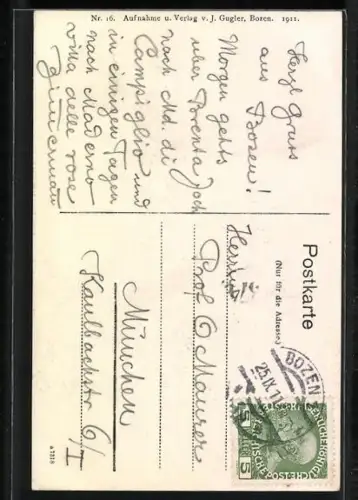 Nr. 16. Aufnahme u. Verlag v. J. Gugler, Bozen. 1911.
Herzl Gruss
aus
Bozen!
Morgen gehts
über Brenta Joch
nach Md. di
Campiglio und
in einigen Tagen
nach Maderno
villa delle rose
Postkarte
(Nur für die Adresse.)
BOZEN
25.IX.11
5 5
Herrn
Prof O Maurer
München
Kaulbachstr 6/I